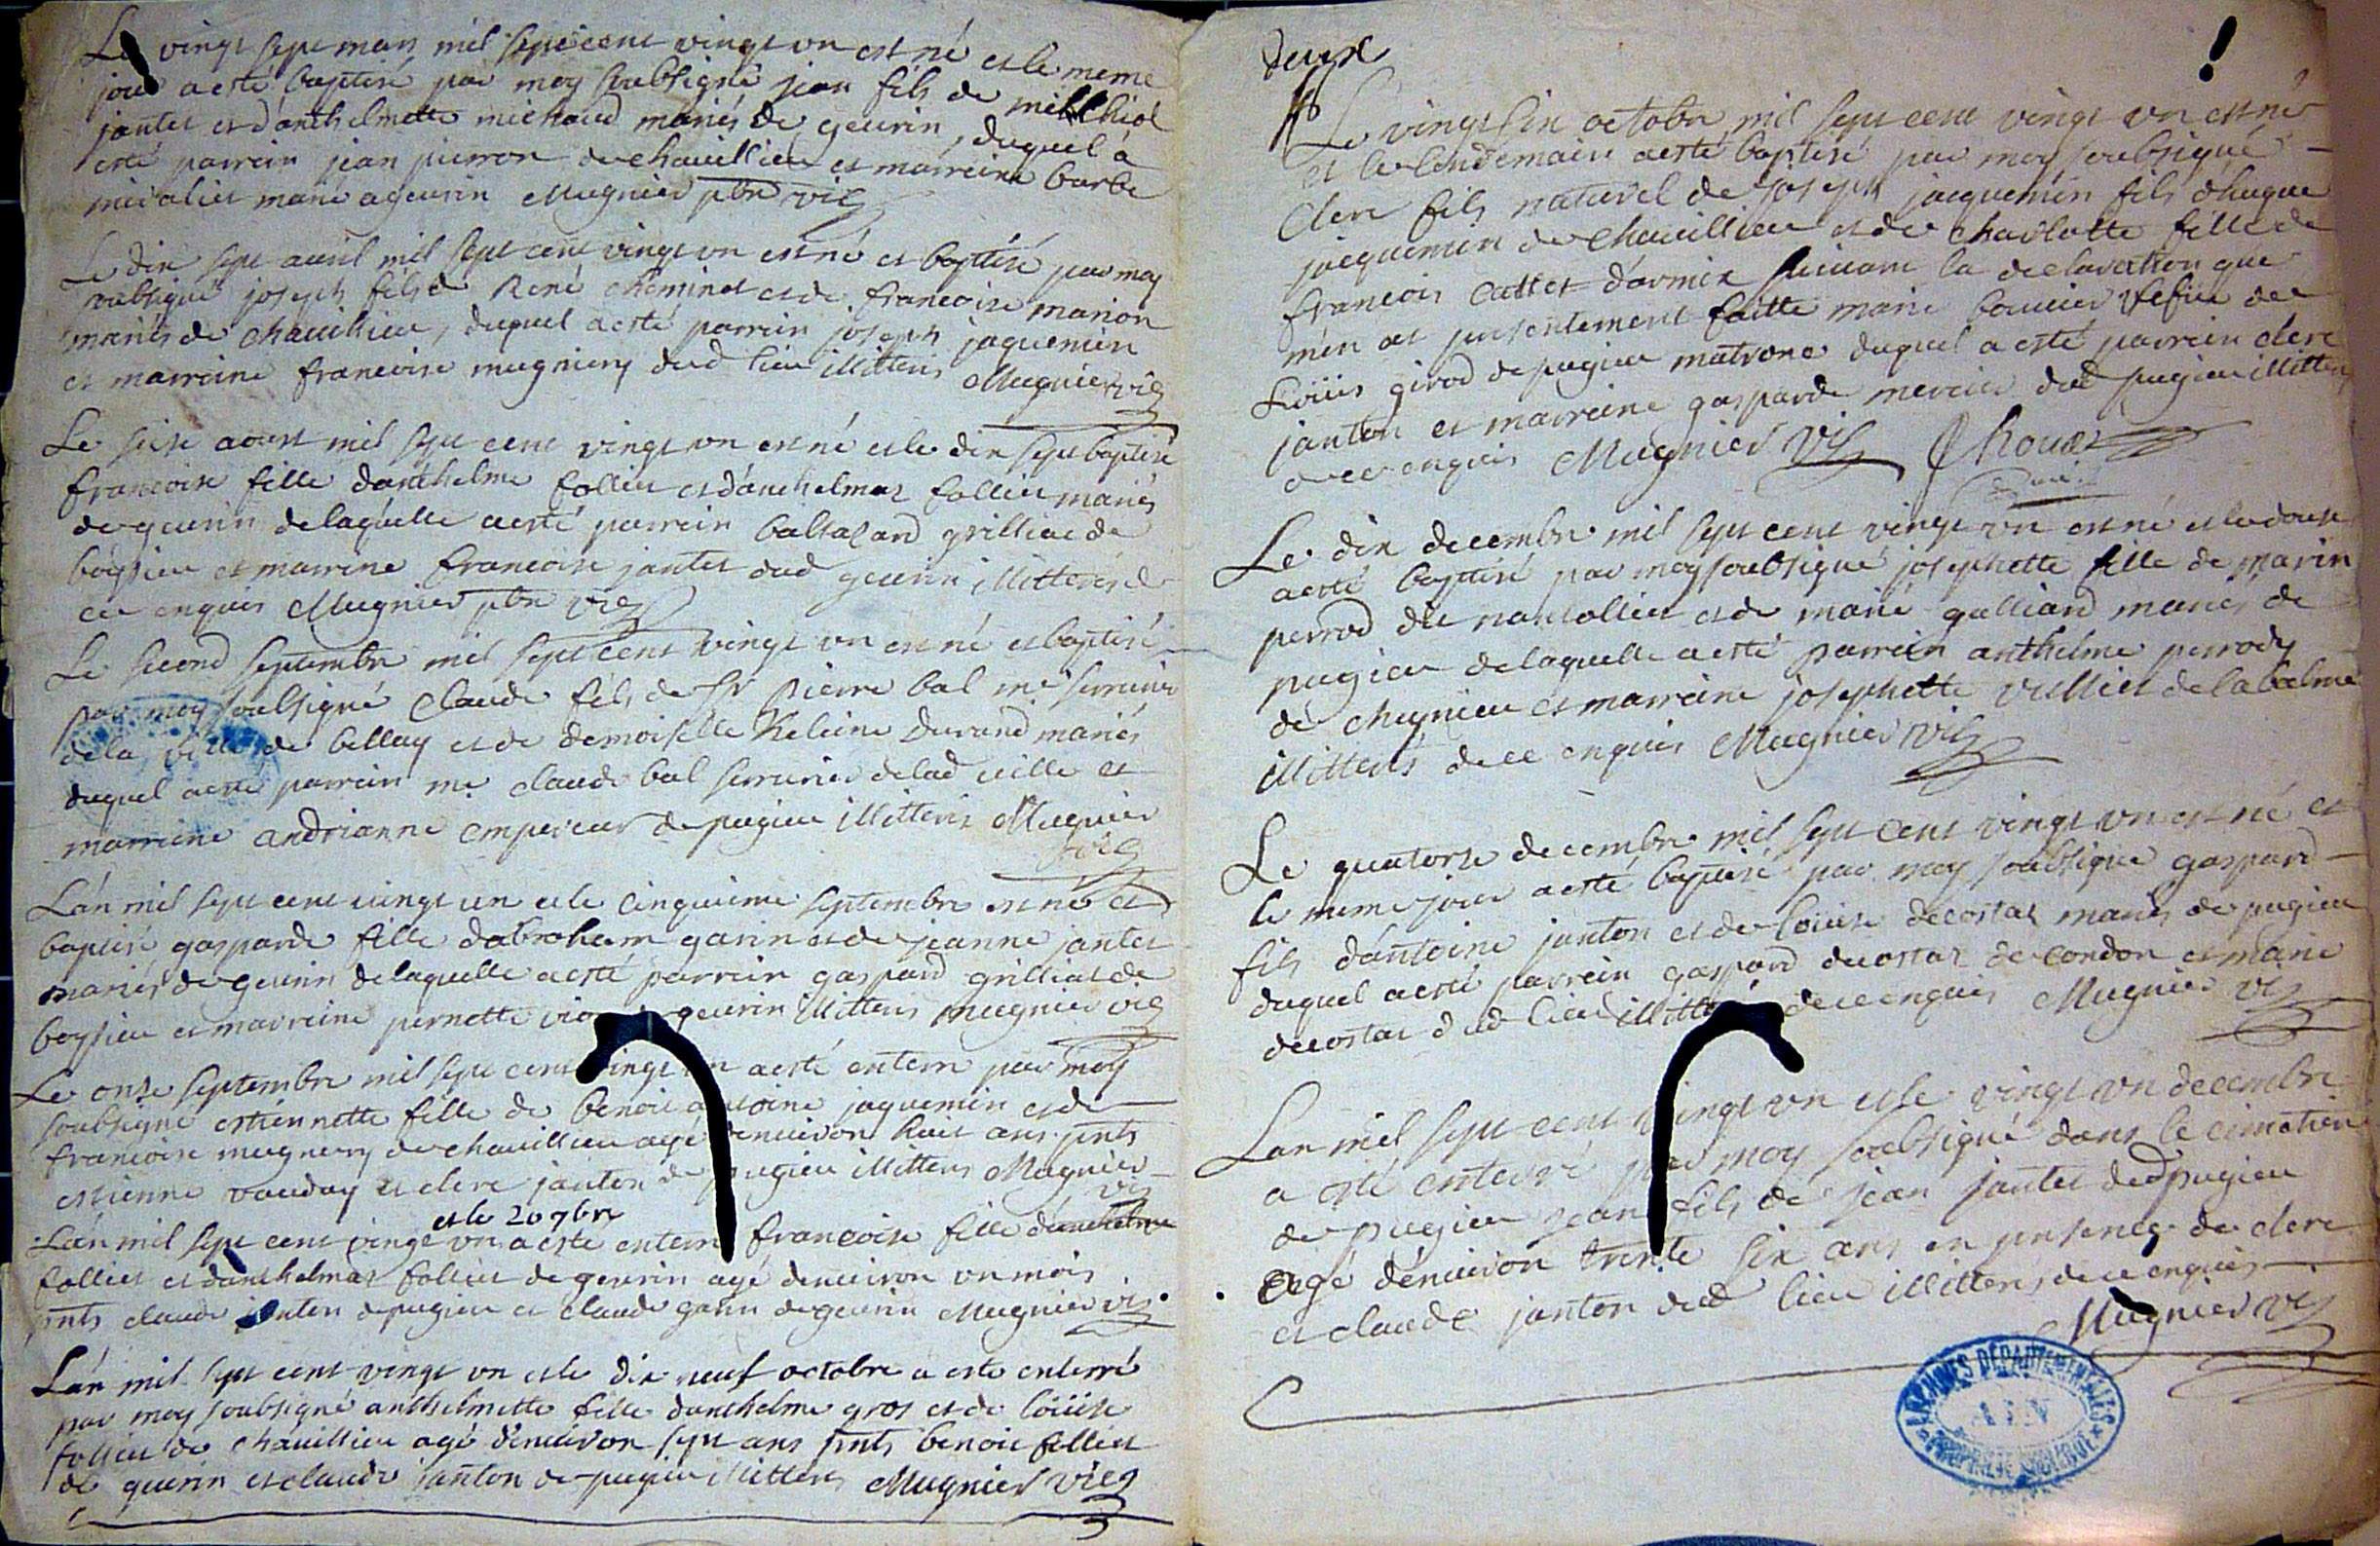 Le vingt sept mars mil sept cent vingt un est né et le meme
jour a esté baptisé par moy soubsigné jean fils de melchiol
jantet et d'anthelmette michaud mariés de geurin, duquel à
esté parrein jean pierron de chavillieu et marreine barbe
marie a geurin Mugnier pbr vic
Le dix sept auril mil sept cent vingt un est né et baptisé par moy
soubsigné joseph fils de René cheminet et de francoise marion
mariés de chavillieu, duquel a esté parrein joseph jaquemin
et marreine francoise mugniery dud lieu illitteris Mugnier vic
Le seise aoust mil sept cent vingt un est né et le dix sept baptisé
francoise fille danthelme follieu et d'anthelmaz follieu mariés
de geurin de laquelle a esté parrein baltazard grilliat de
boysieu et marrine francoise jantet dud geurin illitterés de
ce enquis Mugnier pbr vic
Le second septembre mil sept cent vingt un est né et baptisé
par moy soubsigné Claude fils de Sr Pierre bal me serrurier
de la ville de bellay et de demoiselle Heleine Durand mariés
duquel a esté parrein me claude bal serrurier de lad ville et
marreine andrianne empereur de pugieu illitteris Mugnier
vic
L'an mil sept cent vingt un et le cinquieme septembre est né et
baptisé gasparde fille dabraham garin et de jeanne jantet
mariés de geurin de laquelle a esté parrein gaspard grilliat de
boysieu et marreine pernette geurin illitteris mugnier vic
Le onze septembre mil sept cent vingt un a esté enterré par moy
soubsigné estiennette fille de benoit antoine jaquemin et de
francoise mugniery de chavillieu agé denuiron huit ans pnts
estienne vauday et clere janton de pugieu illitteris Mugnier
vic
et le 20 7bre
L'an mil sept cent vingt un a esté enterré francoise fille danthelme
folliet et d'anthelmaz folliet de geurin agé denuiron un mois
pnts claude janton de pugieu et claude garin de geurin Mugnier vic
L'an mil sept cent vingt un et le dix neuf octobre a esté enterré
par moy soubsigné anthelmette fille danthelme gros et de loüise
follieu de chavillieu agé d'enuiron sept ans pnts benoit folliet
de guerin et claude janton de pugieu illitteris Mugnier vicq
deux
Le vingt six octobre mil sept cent vingt un est né
et le lendemain a esté baptisé par moy soubsigné
Clere fils naturel de joseph jacquemin fils d'hugue
jacquemin de chavillieu et de charlotte fille de
francois cattet d'armix suivant la declaration que
m'en at presentement faitte marie bouvier vefue de
Loüis girod de pugieu matrone duquel a esté parrein clere
janton et marreine gasparde mercier dud pugieu illitteris
de ce enquis Mugnier vic
Le dix decembre mil sept cent vingt un est né et le douse
a esté baptisé par moy soubsigné josephette fille de marin
perrod dit nantollier et de marie galliard mariés de
pugieu de laquelle a esté parrein anthelme perrody
de cheynieu et marreine josephette vullier de la balme
illitterés de ce enquis Mugnier vic
Le quatorse decembre mil sept cent vingt un est né et
le meme jour a esté baptisé par moy soubsigné gaspard
fils d'antoine janton et de loüise decostaz mariés de pugieu
duquel a esté parrein gaspard decostaz de condon et marie
decostaz dud lieu de ce enquis Mugnier vic
Lan mil sept cent vingt un et le vingt un decembre
a esté enterré par moy soubsigné dans le cimetiere
de pugieu jean fils de jean jantet dud pugieu
Agé d'enuiron trente six ans en presence de clere
et claude janton dud lieu illitterés de ce enquis
Mugnier vic
ARCHIVES DÉPARTEMENTALES
AIN